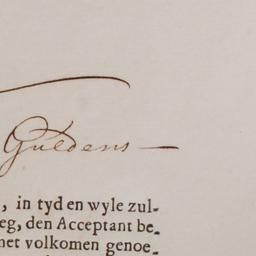 Guldens —
, in tyd en wyle zul-
eg, den Acceptant be-
met volkomen genoe-